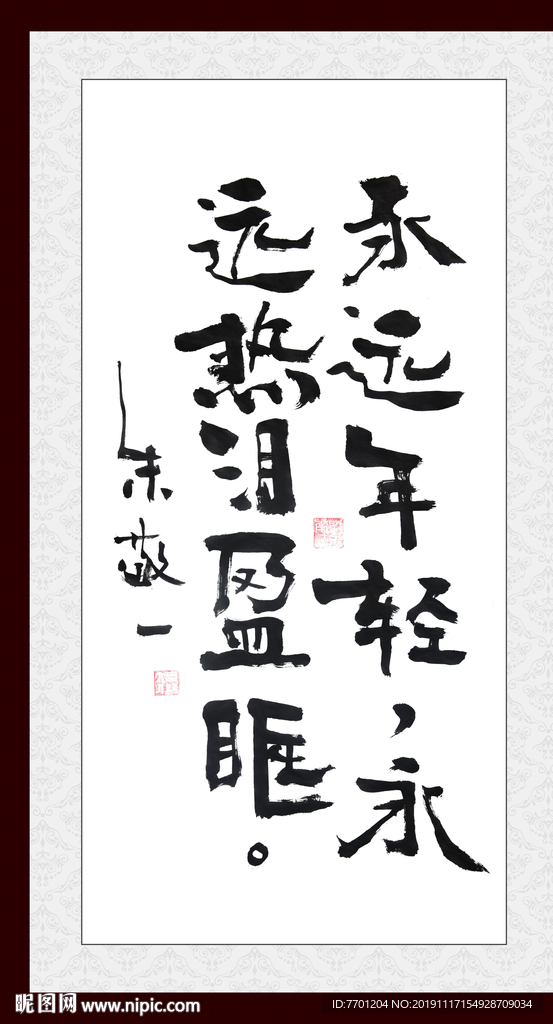 永远年轻，永
远热泪盈眶。
朱敬一
昵图网 www.nipic.com
ID:7701204 NO:20191117154928709034